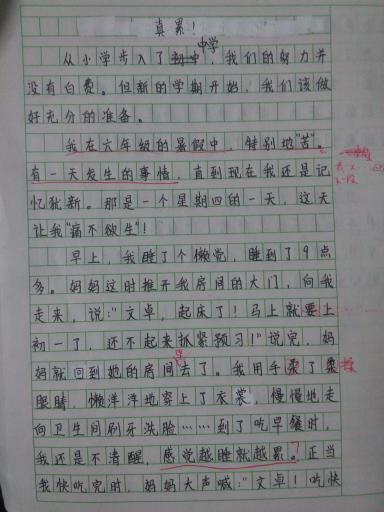 真累！
从小学步入了中学，我们的努力并
没有白费。但新的学期开始，我们该做
好充分的准备。
我在六年级的暑假中，特别地“苦”。
有一天发生的事情，直到现在我还是记
忆犹新。那是一个星期四的一天，这天
让我“痛不欲生”！
早上，我睡了个懒觉，睡到了9点
多。妈妈这时推开我房间的大门，向我
走来，说：“文卓，起床了！马上就要上
初一了，还不起来抓紧预习！”说完，妈
妈就回到她的房间去了。我用手柔了柔揉
眼睛，懒洋洋地穿上了衣裳，慢慢地走
向卫生间刷牙洗脸……到了吃早餐时，
我还是不清醒，感觉越睡就越累。正当
我快吃完时，妈妈大声喊：“文卓！吃快